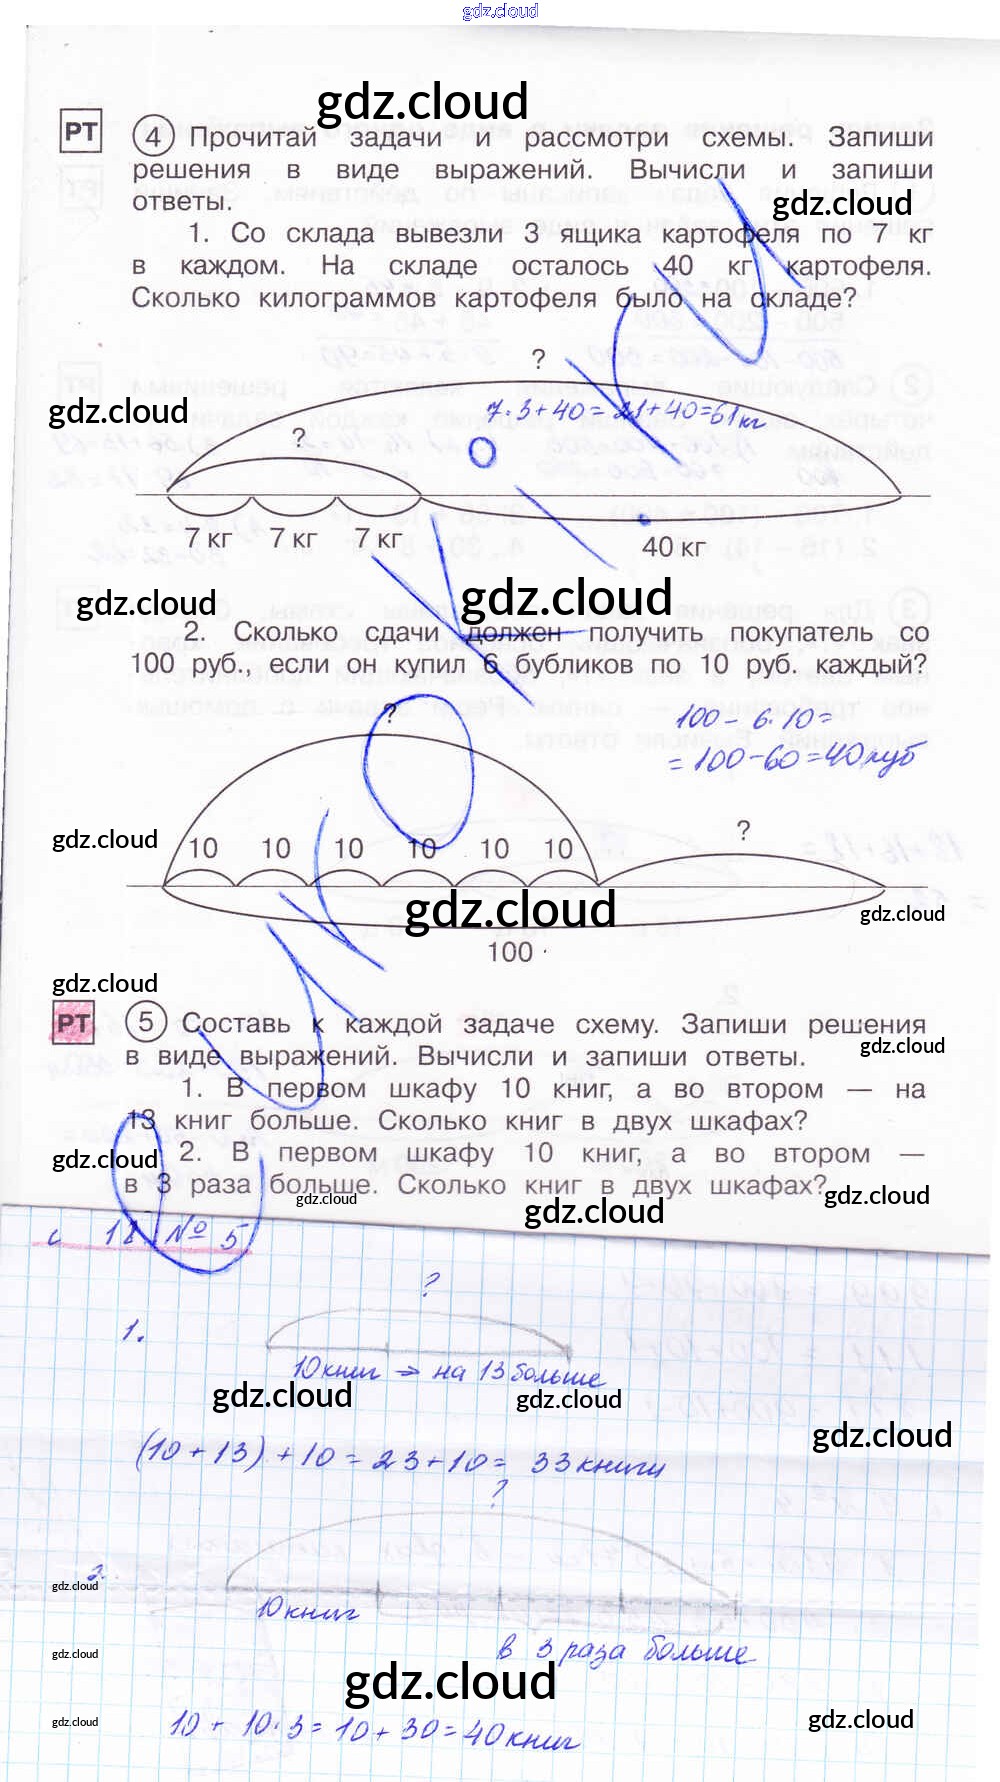 gdz.cloud
gdz.cloud
РТ
4 Прочитай задачи и рассмотри схемы. Запиши
решения в виде выражений. Вычисли и запиши
ответы.
gdz.cloud
1. Со склада вывезли 3 ящика картофеля по 7 кг
в каждом. На складе осталось 40 кг картофеля.
Сколько килограммов картофеля было на складе?
?
gdz.cloud
7·3+40=21+40=61кг
?
7 кг 7 кг 7 кг 40 кг
gdz.cloud
gdz.cloud
2. Сколько сдачи должен получить покупатель со
100 руб., если он купил 6 бубликов по 10 руб. каждый?
?
100-6·10=
=100-60=40руб
gdz.cloud
10 10 10 10 10 10
?
gdz.cloud
gdz.cloud
100
gdz.cloud
РТ
5 Составь к каждой задаче схему. Запиши решения
в виде выражений. Вычисли и запиши ответы.
gdz.cloud
1. В первом шкафу 10 книг, а во втором — на
13 книг больше. Сколько книг в двух шкафах?
2. В первом шкафу 10 книг, а во втором —
gdz.cloud
в 3 раза больше. Сколько книг в двух шкафах?
gdz.cloud
gdz.cloud
gdz.cloud
с 12 №5
?
1.
10книг → на 13 больше
gdz.cloud
gdz.cloud
gdz.cloud
(10+13)+10=23+10= 33книги
?
2.
gdz.cloud
10книг
в 3 раза больше
gdz.cloud
gdz.cloud
10+10·3=10+30=40книг
gdz.cloud
gdz.cloud